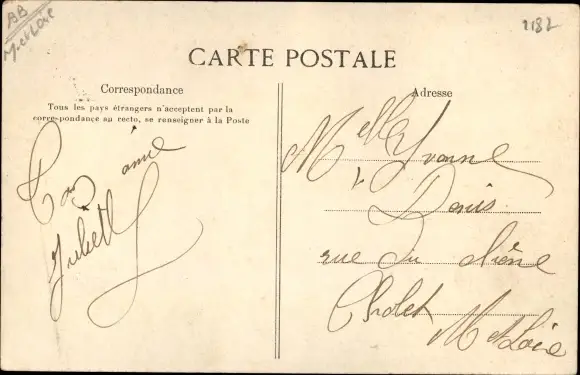 BB
M-et-Loire
2182
CARTE POSTALE
Correspondance
Tous les pays étrangers n'acceptent par la
correspondance au recto, se renseigner à la Poste
Ton amie
Juliette
Adresse
Melle Yvonne
Denis
rue du Chêne
Cholet
M et Loire